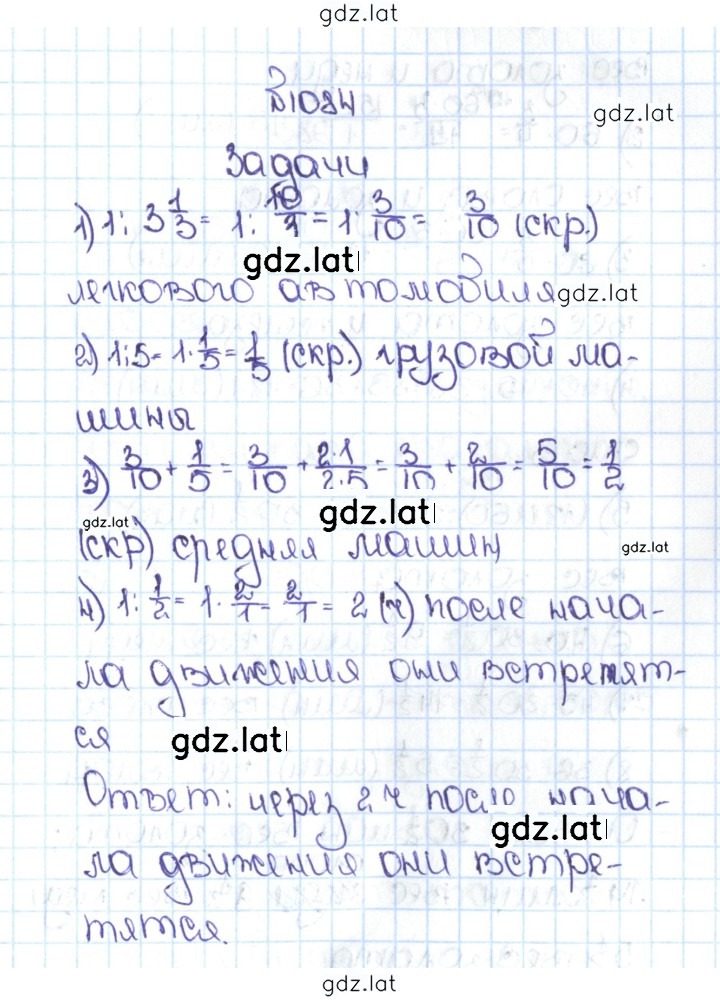 gdz.lat
№1084
gdz.lat
Задачи
1) 1 : 3 1/3 = 1 : 10/3 = 1 · 3/10 = 3/10 (скр.)
gdz.lat
легкового автомобиля gdz.lat
2) 1 : 5 = 1 · 1/5 = 1/5 (скр.) грузовой ма-
шины
3) 3/10 + 1/5 = 3/10 + 2·1/2·5 = 3/10 + 2/10 = 5/10 = 1/2
gdz.lat gdz.lat
(скр) средняя машин gdz.lat
4) 1 : 1/2 = 1 · 2/1 = 2/1 = 2 (ч) после нача-
ла движения они встретят-
ся gdz.lat
Ответ: через 2 ч после нача-
gdz.lat
ла движения они встре-
тятся.
gdz.lat